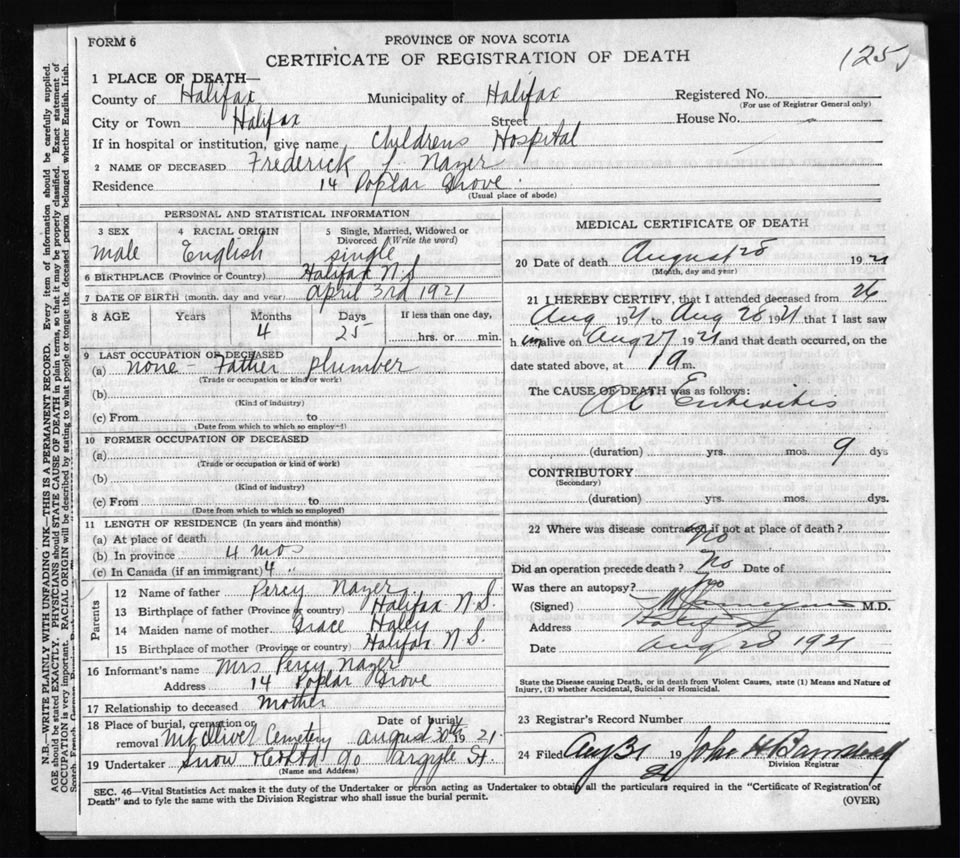 FORM 6
PROVINCE OF NOVA SCOTIA
CERTIFICATE OF REGISTRATION OF DEATH
125
1 PLACE OF DEATH—
County of Halifax Municipality of Halifax Registered No.
(For use of Registrar General only)
City or Town Halifax Street House No.
If in hospital or institution, give name Childrens Hospital
2 NAME OF DECEASED Frederick L. Nayer
Residence 14 Poplar Grove
(Usual place of abode)
PERSONAL AND STATISTICAL INFORMATION
3 SEX 4 RACIAL ORIGIN 5 Single, Married, Widowed or
Divorced (Write the word)
male English single
6 BIRTHPLACE (Province or Country) Halifax N.S
7 DATE OF BIRTH (month, day and year) April 3rd 1921
8 AGE Years Months Days If less than one day,
4 25 hrs. or min.
9 LAST OCCUPATION OF DECEASED
(a) none - Father plumber
(Trade or occupation or kind of work)
(b)
(Kind of industry)
(c) From to
(Date from which to so employed)
10 FORMER OCCUPATION OF DECEASED
(a)
(Trade or occupation or kind of work)
(b)
(Kind of industry)
(c) From to
(Date from which to so employed)
11 LENGTH OF RESIDENCE (In years and months)
(a) At place of death
(b) In province 4 mos
(c) In Canada (if an immigrant) 4 "
Parents
12 Name of father Percy Nayer
13 Birthplace of father (Province or country) Halifax N.S.
14 Maiden name of mother Grace Haley
15 Birthplace of mother (Province or Country) Halifax N.S
16 Informant's name Mrs Percy Nayer
Address 14 Poplar Grove
17 Relationship to deceased Mother
18 Place of burial, cremation or Date of burial
removal Mt Olivet Cemetery August 30th 1921
19 Undertaker Snow 90 Argyle St.
(Name and Address)
MEDICAL CERTIFICATE OF DEATH
20 Date of death August 28 1921
(Month, day and year)
21 I HEREBY CERTIFY, that I attended deceased from 26
Aug 1921 to Aug 28 1921 that I last saw
h im alive on Aug 27 1921 and that death occurred, on the
date stated above, at 1 a m.
The CAUSE OF DEATH was as follows:
Ac Enteritis
(duration) yrs. mos. 9 dys
CONTRIBUTORY
(Secondary)
(duration) yrs. mos. dys.
22 Where was disease contracted if not at place of death?
No
Did an operation precede death? No Date of
Was there an autopsy? No
(Signed) M.D.
Address Halifax
Date Aug 28 1921
State the Disease causing Death, or in death from Violent Causes, state (1) Means and Nature of
Injury, (2) whether Accidental, Suicidal or Homicidal.
23 Registrar's Record Number
24 Filed Aug 31 19 21 John H
Division Registrar
SEC. 46—Vital Statistics Act makes it the duty of the Undertaker or person acting as Undertaker to obtain all the particulars required in the "Certificate of Registration of
Death" and to fyle the same with the Division Registrar who shall issue the burial permit.
(OVER)
N.B.—WRITE PLAINLY WITH UNFADING INK—THIS IS A PERMANENT RECORD. Every item of information should be carefully supplied.
AGE should be stated EXACTLY. PHYSICIANS should STATE CAUSE OF DEATH in plain terms, so that it may be properly classified. Exact statement of
OCCUPATION is very important. RACIAL ORIGIN will be described by stating to what people or tongue the deceased person belonged whether English, Irish,